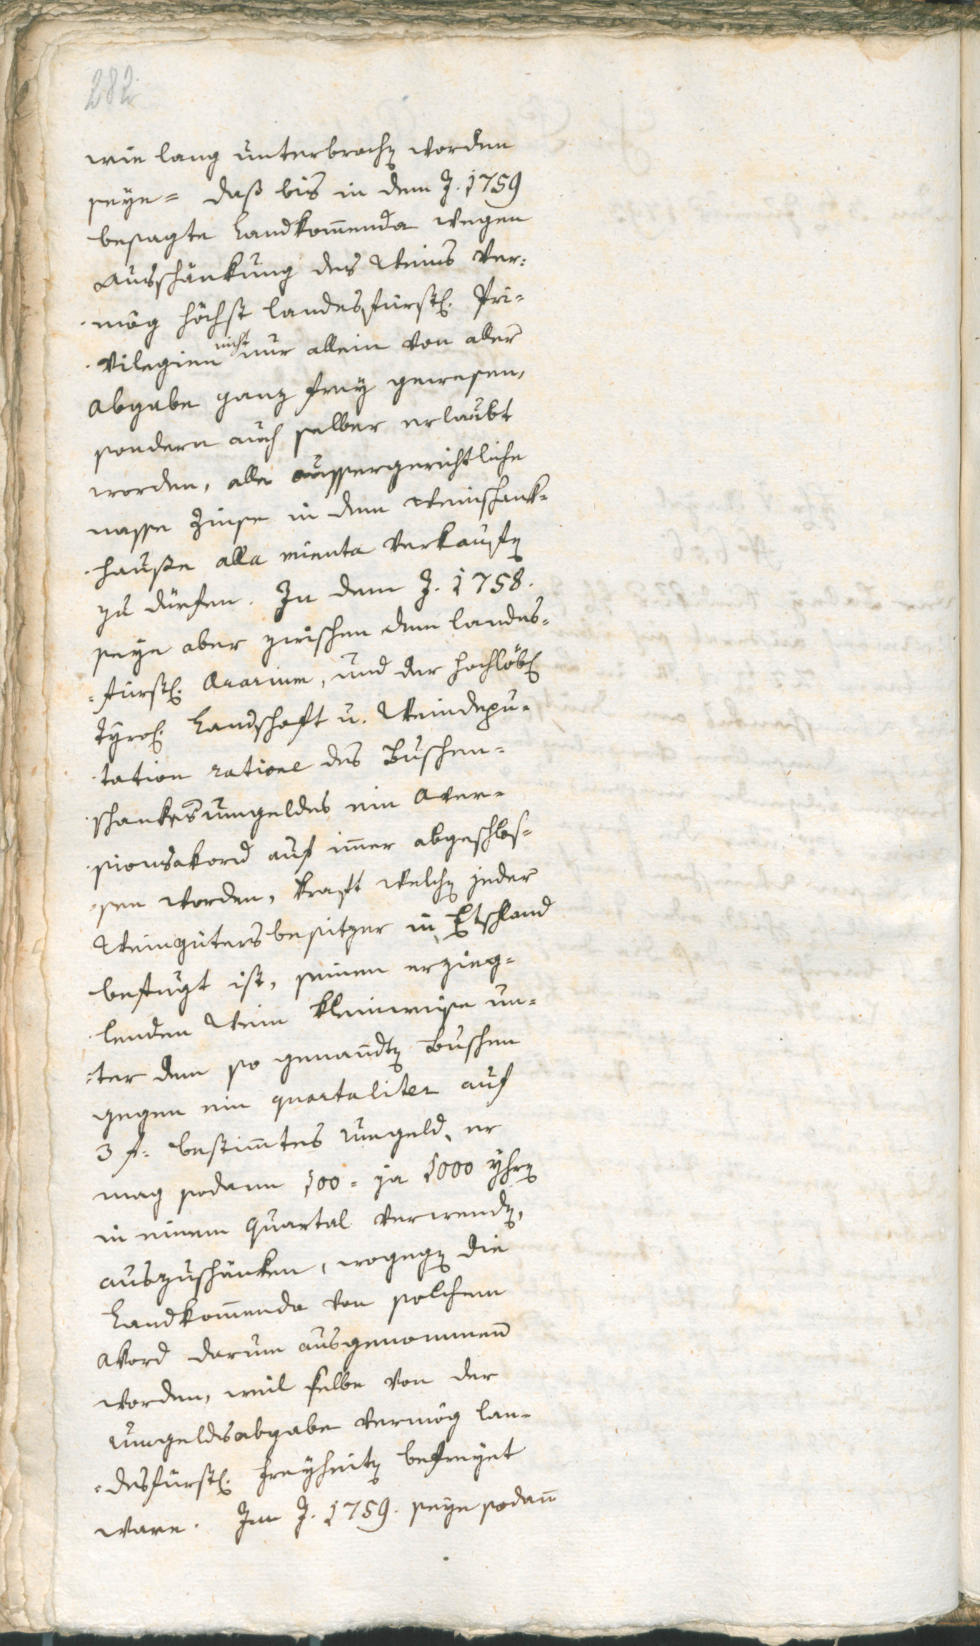 282
wie lang unterbrochen worden
seye = daß bis in dem J. 1759
besagte Landkommenda wegen
Ausschänkung des Weins ver:
mög höchst landesfürstl. Pri=
vilegien nicht nur allein von aller
Abgabe ganz frey gewesen,
sondern auch selber erlaubt
worden, alle aussergerichtliche
nasse Zinse in dem Weinschank=
hause alla minuta verkaufen
zu dürfen. In dem J. 1758.
seye aber zwischen dem landes=
fürstl. Aerarium, und der hochlöbl.
Tyrol. Landschaft u. Weindepu=
tation ratione des Buschen=
schanksumgeldes ein Aver=
sionsakord auf immer abgeschlos=
sen worden, kraft welchen jeder
Weingütersbesitzer in Etschland
befugt ist, seinen erzieg=
lenden Wein kleinweise un=
ter dem so genandten Buschen
gegen ein quartaliter auf
3 f. bestimmtes Umgeld, er
mag sodann 100 = ja 1000 Yhren
in einem Quartal verwenden,
auszuschänken, wogegen die
Landkommenda von solchem
Akord darum ausgenommen
worden, weil selbe von der
Umgeldsabgabe vermög lan=
desfürstl. Freyheiten befreyet
ware. Im J. 1759. seye sodann